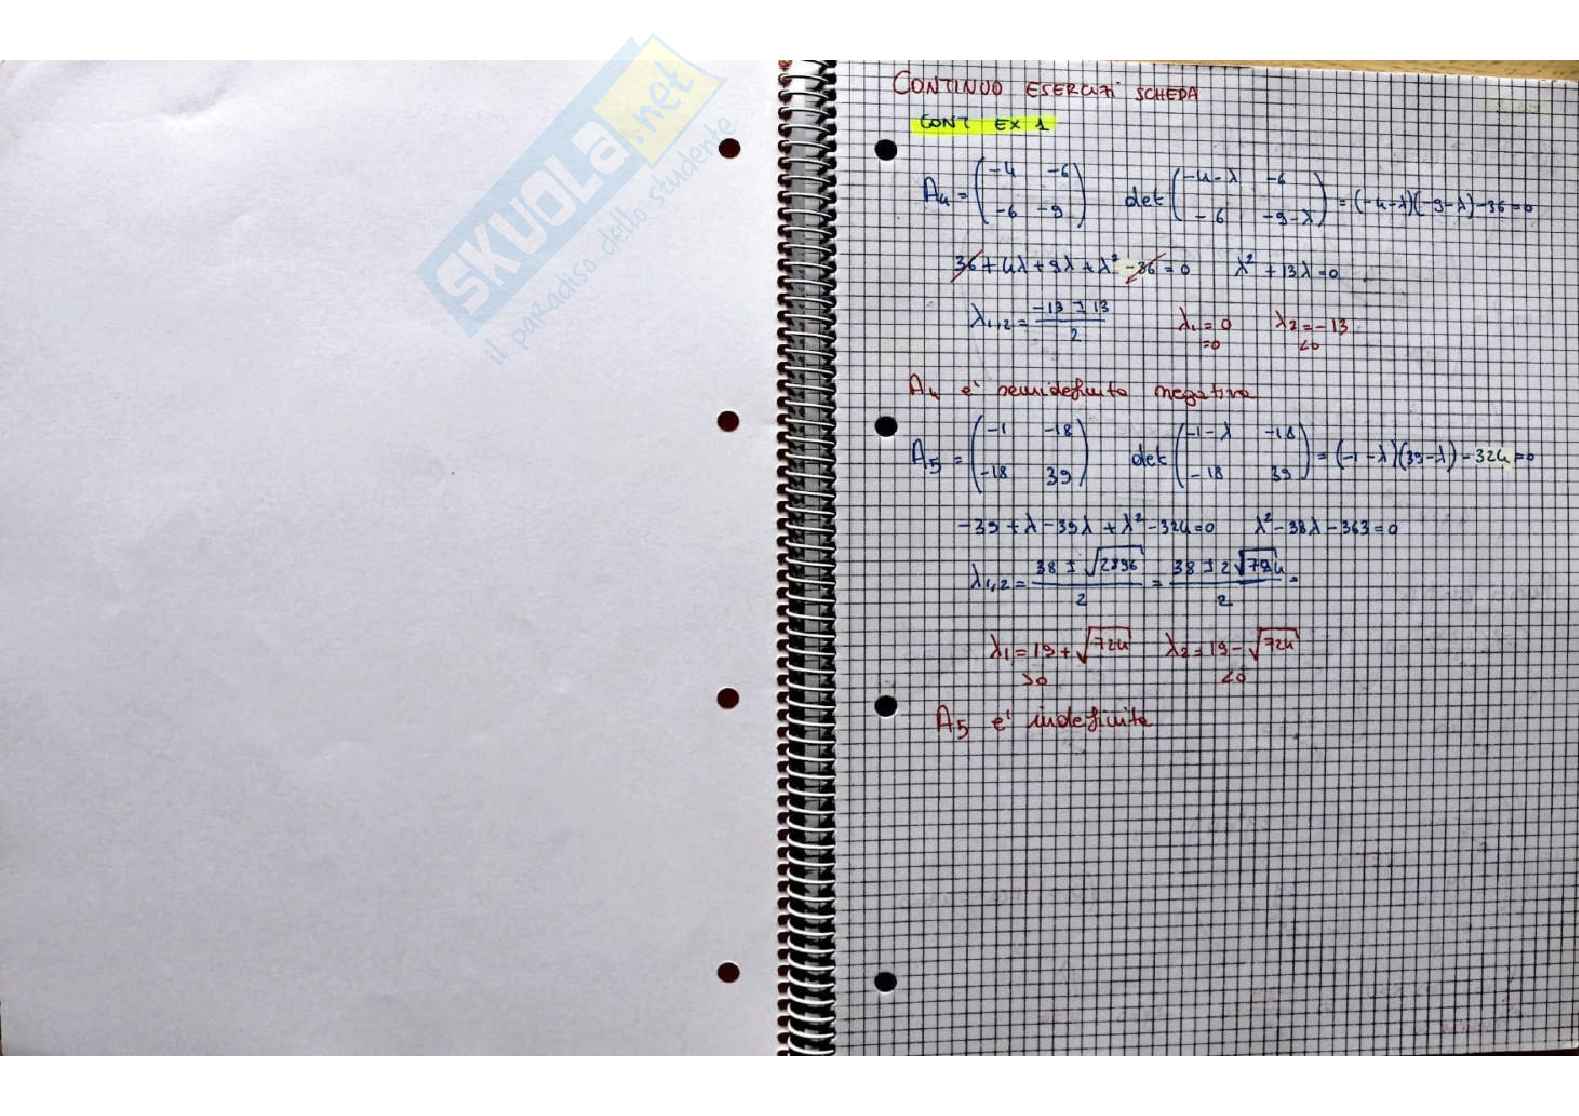 SKUOLA.net
il paradiso dello studente
CONTINUO ESERCIZI SCHEDA
CONT EX 1
A₄ = (-4 -6 / -6 -9) det (-4-λ -6 / -6 -9-λ) = (-4-λ)(-9-λ) - 36 = 0
36 + 4λ + 9λ + λ² - 36 = 0 λ² + 13λ = 0
λ₁,₂ = (-13 ± 13)/2 λ₁ = 0 λ₂ = -13
=0 <0
A₄ e' semidefinita negativa
A₅ = (-1 -18 / -18 39) det (-1-λ -18 / -18 39) = (-1-λ)(39-λ) - 324 = 0
-39 + λ - 39λ + λ² - 324 = 0 λ² - 38λ - 363 = 0
λ₁,₂ = (38 ± √2896)/2 = (38 ± 2√724)/2 =
λ₁ = 19 + √724 λ₂ = 19 - √724
>0 <0
A₅ e' indefinita